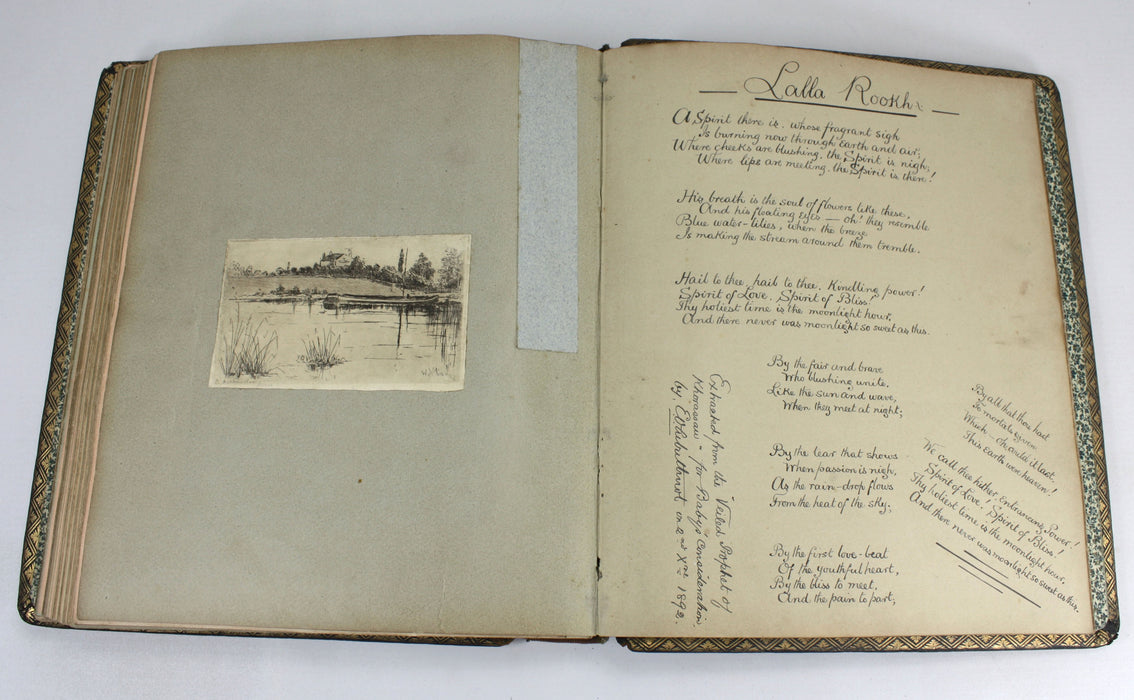 Lalla Rookh
A Spirit there is. whose fragrant sigh
Is burning now through Earth and air;
Where cheeks are blushing. the Spirit is nigh,
Where lips are meeting. the Spirit is there!
His breath is the soul of flowers like these,
And his floating eyes — oh! they resemble
Blue water-lilies, when the breeze
Is making the stream around them tremble.
Hail to thee, hail to thee. Kindling power!
Spirit of Love. Spirit of Bliss!
Thy holiest time is the moonlight hour,
And there never was moonlight so sweet as this.
By the fair and brave
Who blushing unite,
Like the sun and wave,
When they meet at night;
By the tear that shows
When passion is nigh,
As the rain-drop flows
From the heat of the sky;
By the first love-beat
Of the youthful heart,
By the bliss to meet,
And the pain to part;
By all that thou hast
To mortals given
Which — oh could it last,
This earth were heaven!
We call thee hither, Entrancing Power!
Spirit of Love! Spirit of Bliss!
Thy holiest time is the moonlight hour,
And there never was moonlight so sweet as this.
Extracted from the "Veiled Prophet of
Khorassaw" for Baby's consideration,
by on 2nd Xne 1892.